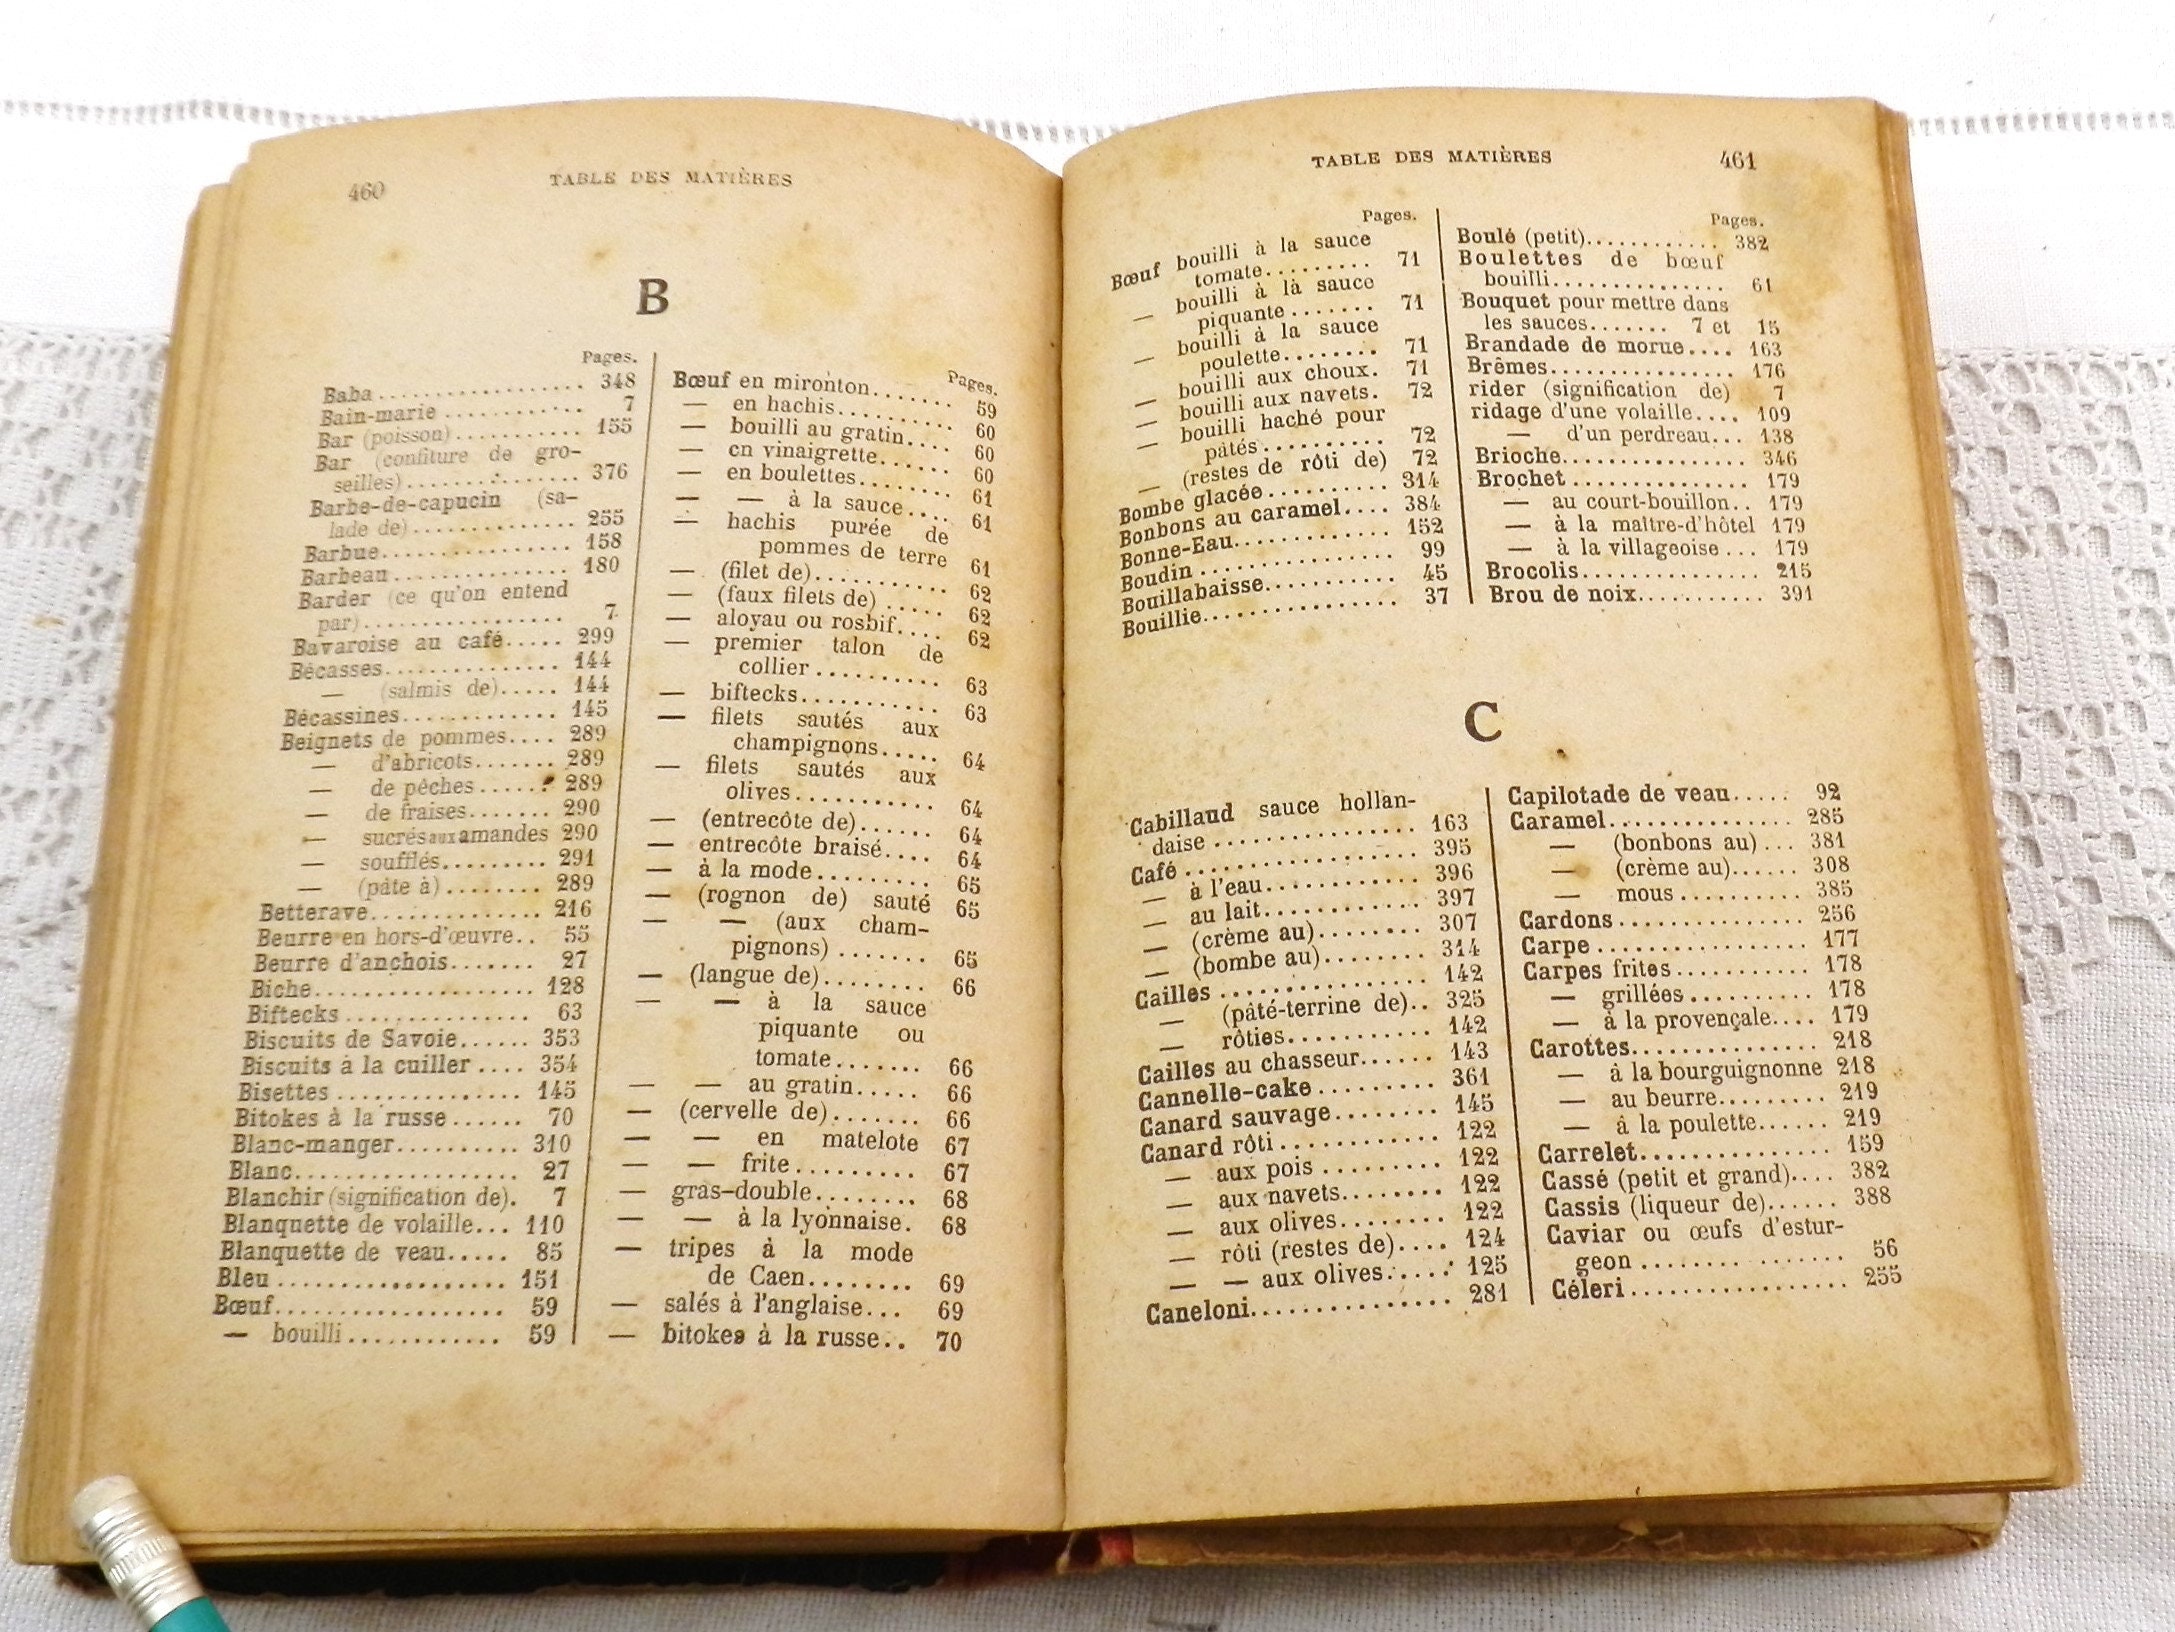 460 TABLE DES MATIÈRES
B
Pages.
Baba ................ 348
Bain-marie ............ 7
Bar (poisson) ........... 155
Bar (confiture de gro-
seilles) ............... 376
Barbe-de-capucin (sa-
lade de) ............... 255
Barbue ................ 158
Barbeau ............... 180
Barder (ce qu'on entend
par) .................. 7
Bavaroise au café ..... 299
Bécasses .............. 144
— (salmis de) ..... 144
Bécassines ............ 145
Beignets de pommes .... 289
— d'abricots ....... 289
— de pêches ...... 289
— de fraises ....... 290
— sucrés aux amandes 290
— soufflés ......... 291
— (pâte à) ........ 289
Betterave .............. 216
Beurre en hors-d'œuvre .. 55
Beurre d'anchois ....... 27
Biche .................. 128
Biftecks ............... 63
Biscuits de Savoie ...... 353
Biscuits à la cuiller .... 354
Bisettes ............... 145
Bitokes à la russe ...... 70
Blanc-manger .......... 310
Blanc .................. 27
Blanchir (signification de). 7
Blanquette de volaille ... 110
Blanquette de veau ..... 85
Bleu ................... 151
Bœuf ................... 59
— bouilli ............ 59
Pages.
Bœuf en mironton ....... 59
— en hachis .......... 60
— bouilli au gratin .... 60
— en vinaigrette ...... 60
— en boulettes ........ 61
— — à la sauce .... 61
— hachis purée de
pommes de terre 61
— (filet de) ........... 62
— (faux filets de) ..... 62
— aloyau ou rosbif .... 62
— premier talon de
collier .......... 63
— biftecks ............ 63
— filets sautés aux
champignons ..... 64
— filets sautés aux
olives ........... 64
— (entrecôte de) ...... 64
— entrecôte braisé .... 64
— à la mode .......... 65
— (rognon de) sauté 65
— — (aux cham-
pignons) ....... 65
— (langue de) ........ 66
— — à la sauce
piquante ou
tomate ....... 66
— — au gratin ..... 66
— (cervelle de) ....... 66
— — en matelote 67
— — frite ......... 67
— gras-double ........ 68
— — à la lyonnaise . 68
— tripes à la mode
de Caen ........ 69
— salés à l'anglaise ... 69
— bitokes à la russe .. 70
TABLE DES MATIÈRES 461
Pages.
Bœuf bouilli à la sauce
tomate ......... 71
— bouilli à la sauce
piquante ....... 71
— bouilli à la sauce
poulette ........ 71
— bouilli aux choux . 71
— bouilli aux navets . 72
— bouilli haché pour
pâtés .......... 72
— (restes de rôti de) 72
Bombe glacée .......... 314
Bonbons au caramel .... 384
Bonne-Eau ............. 152
Boudin ................ 99
Bouillabaisse ........... 45
Bouillie ............... 37
Pages.
Boulé (petit) ............ 382
Boulettes de bœuf
bouilli ............... 61
Bouquet pour mettre dans
les sauces ....... 7 et 15
Brandade de morue .... 163
Brêmes ................ 176
rider (signification de) 7
ridage d'une volaille .... 109
— d'un perdreau ... 138
Brioche ................ 346
Brochet ............... 179
— au court-bouillon .. 179
— à la maître-d'hôtel 179
— à la villageoise ... 179
Brocolis ............... 215
Brou de noix ........... 391
C
Cabillaud sauce hollan-
daise .............. 163
Café .................. 395
— à l'eau ............ 396
— au lait ............ 397
— (crème au) ........ 307
— (bombe au) ........ 314
Cailles ................ 142
— (pâté-terrine de) .. 325
— rôties ............ 142
Cailles au chasseur ...... 143
Cannelle-cake .......... 361
Canard sauvage ........ 145
Canard rôti ............ 122
— aux pois ......... 122
— aux navets ........ 122
— aux olives ........ 122
— rôti (restes de) .... 124
— — aux olives ..... 125
Caneloni ............... 281
Capilotade de veau ..... 92
Caramel ............... 285
— (bonbons au) ... 381
— (crème au) ...... 308
— mous ........... 385
Cardons ............... 256
Carpe ................. 177
Carpes frites ........... 178
— grillées .......... 178
— à la provençale .... 179
Carottes ............... 218
— à la bourguignonne 218
— au beurre ......... 219
— à la poulette ...... 219
Carrelet ............... 159
Cassé (petit et grand) .... 382
Cassis (liqueur de) ...... 388
Caviar ou œufs d'estur-
geon ................ 56
Céleri ................. 255